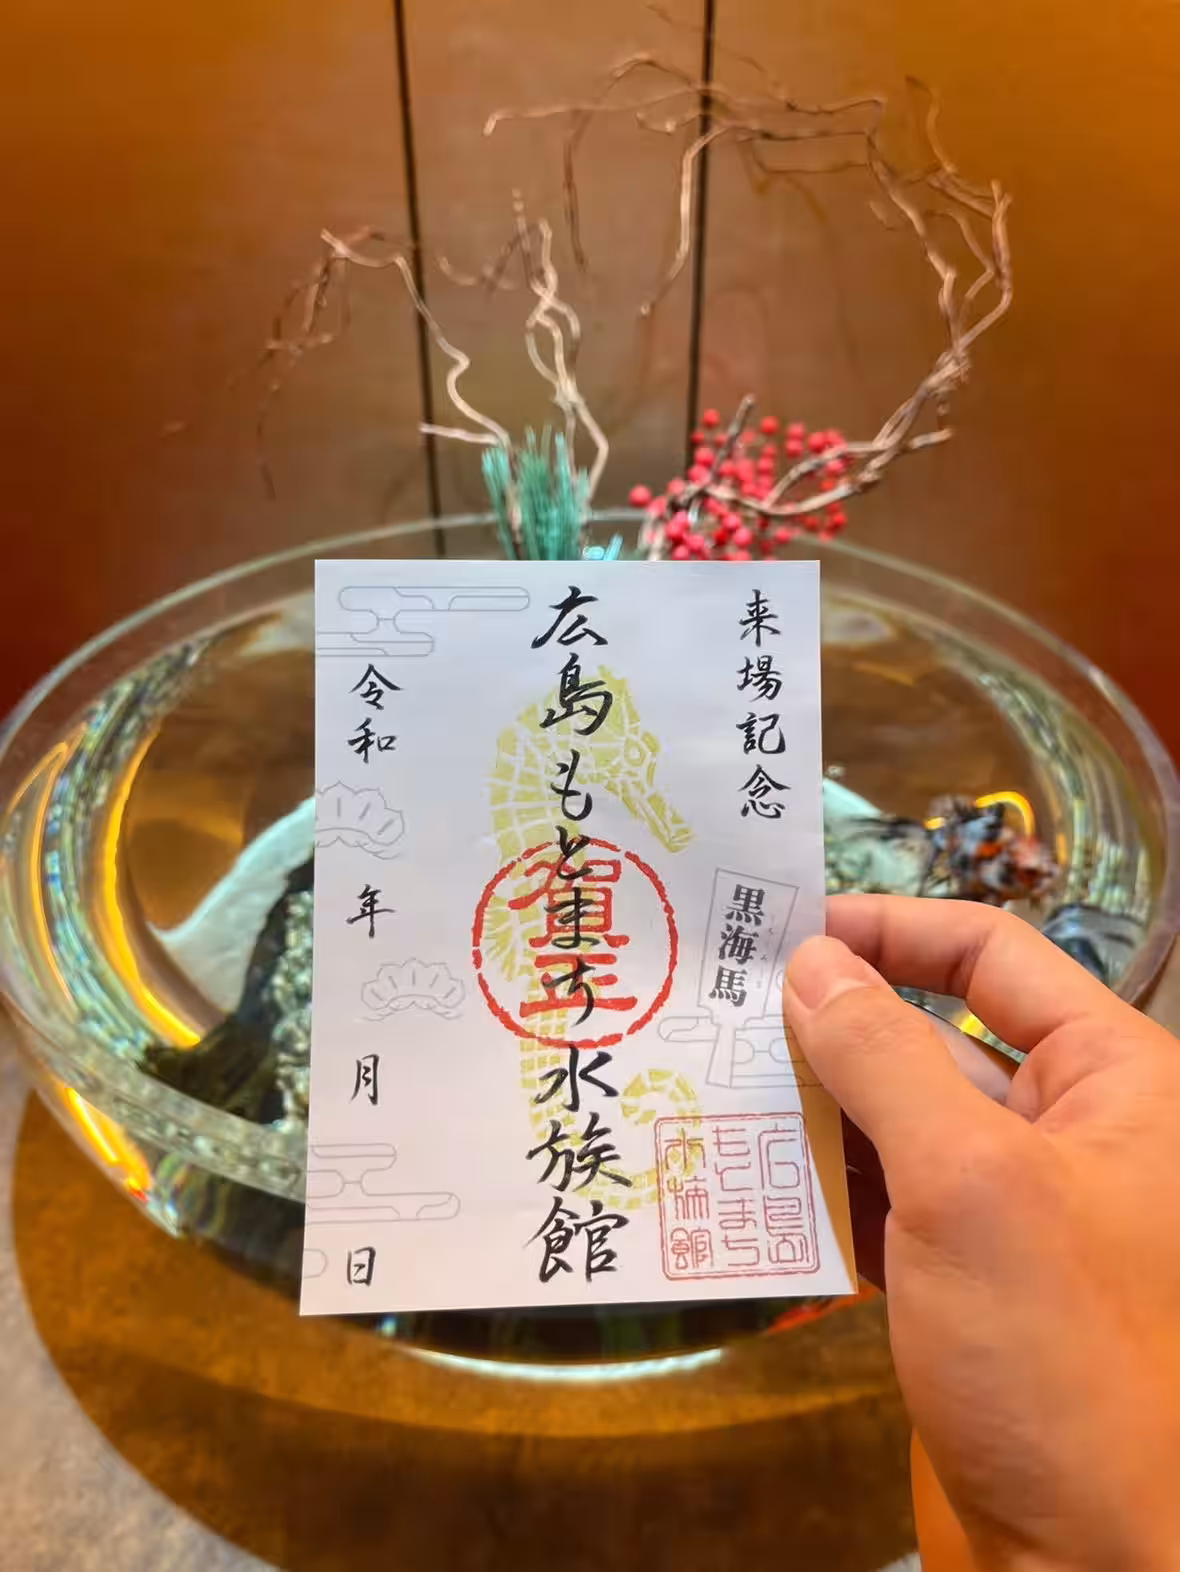 来場記念
黒海馬
広島もとまち水族館
賀正
令和 年 月 日
広島
もとまち
水族館